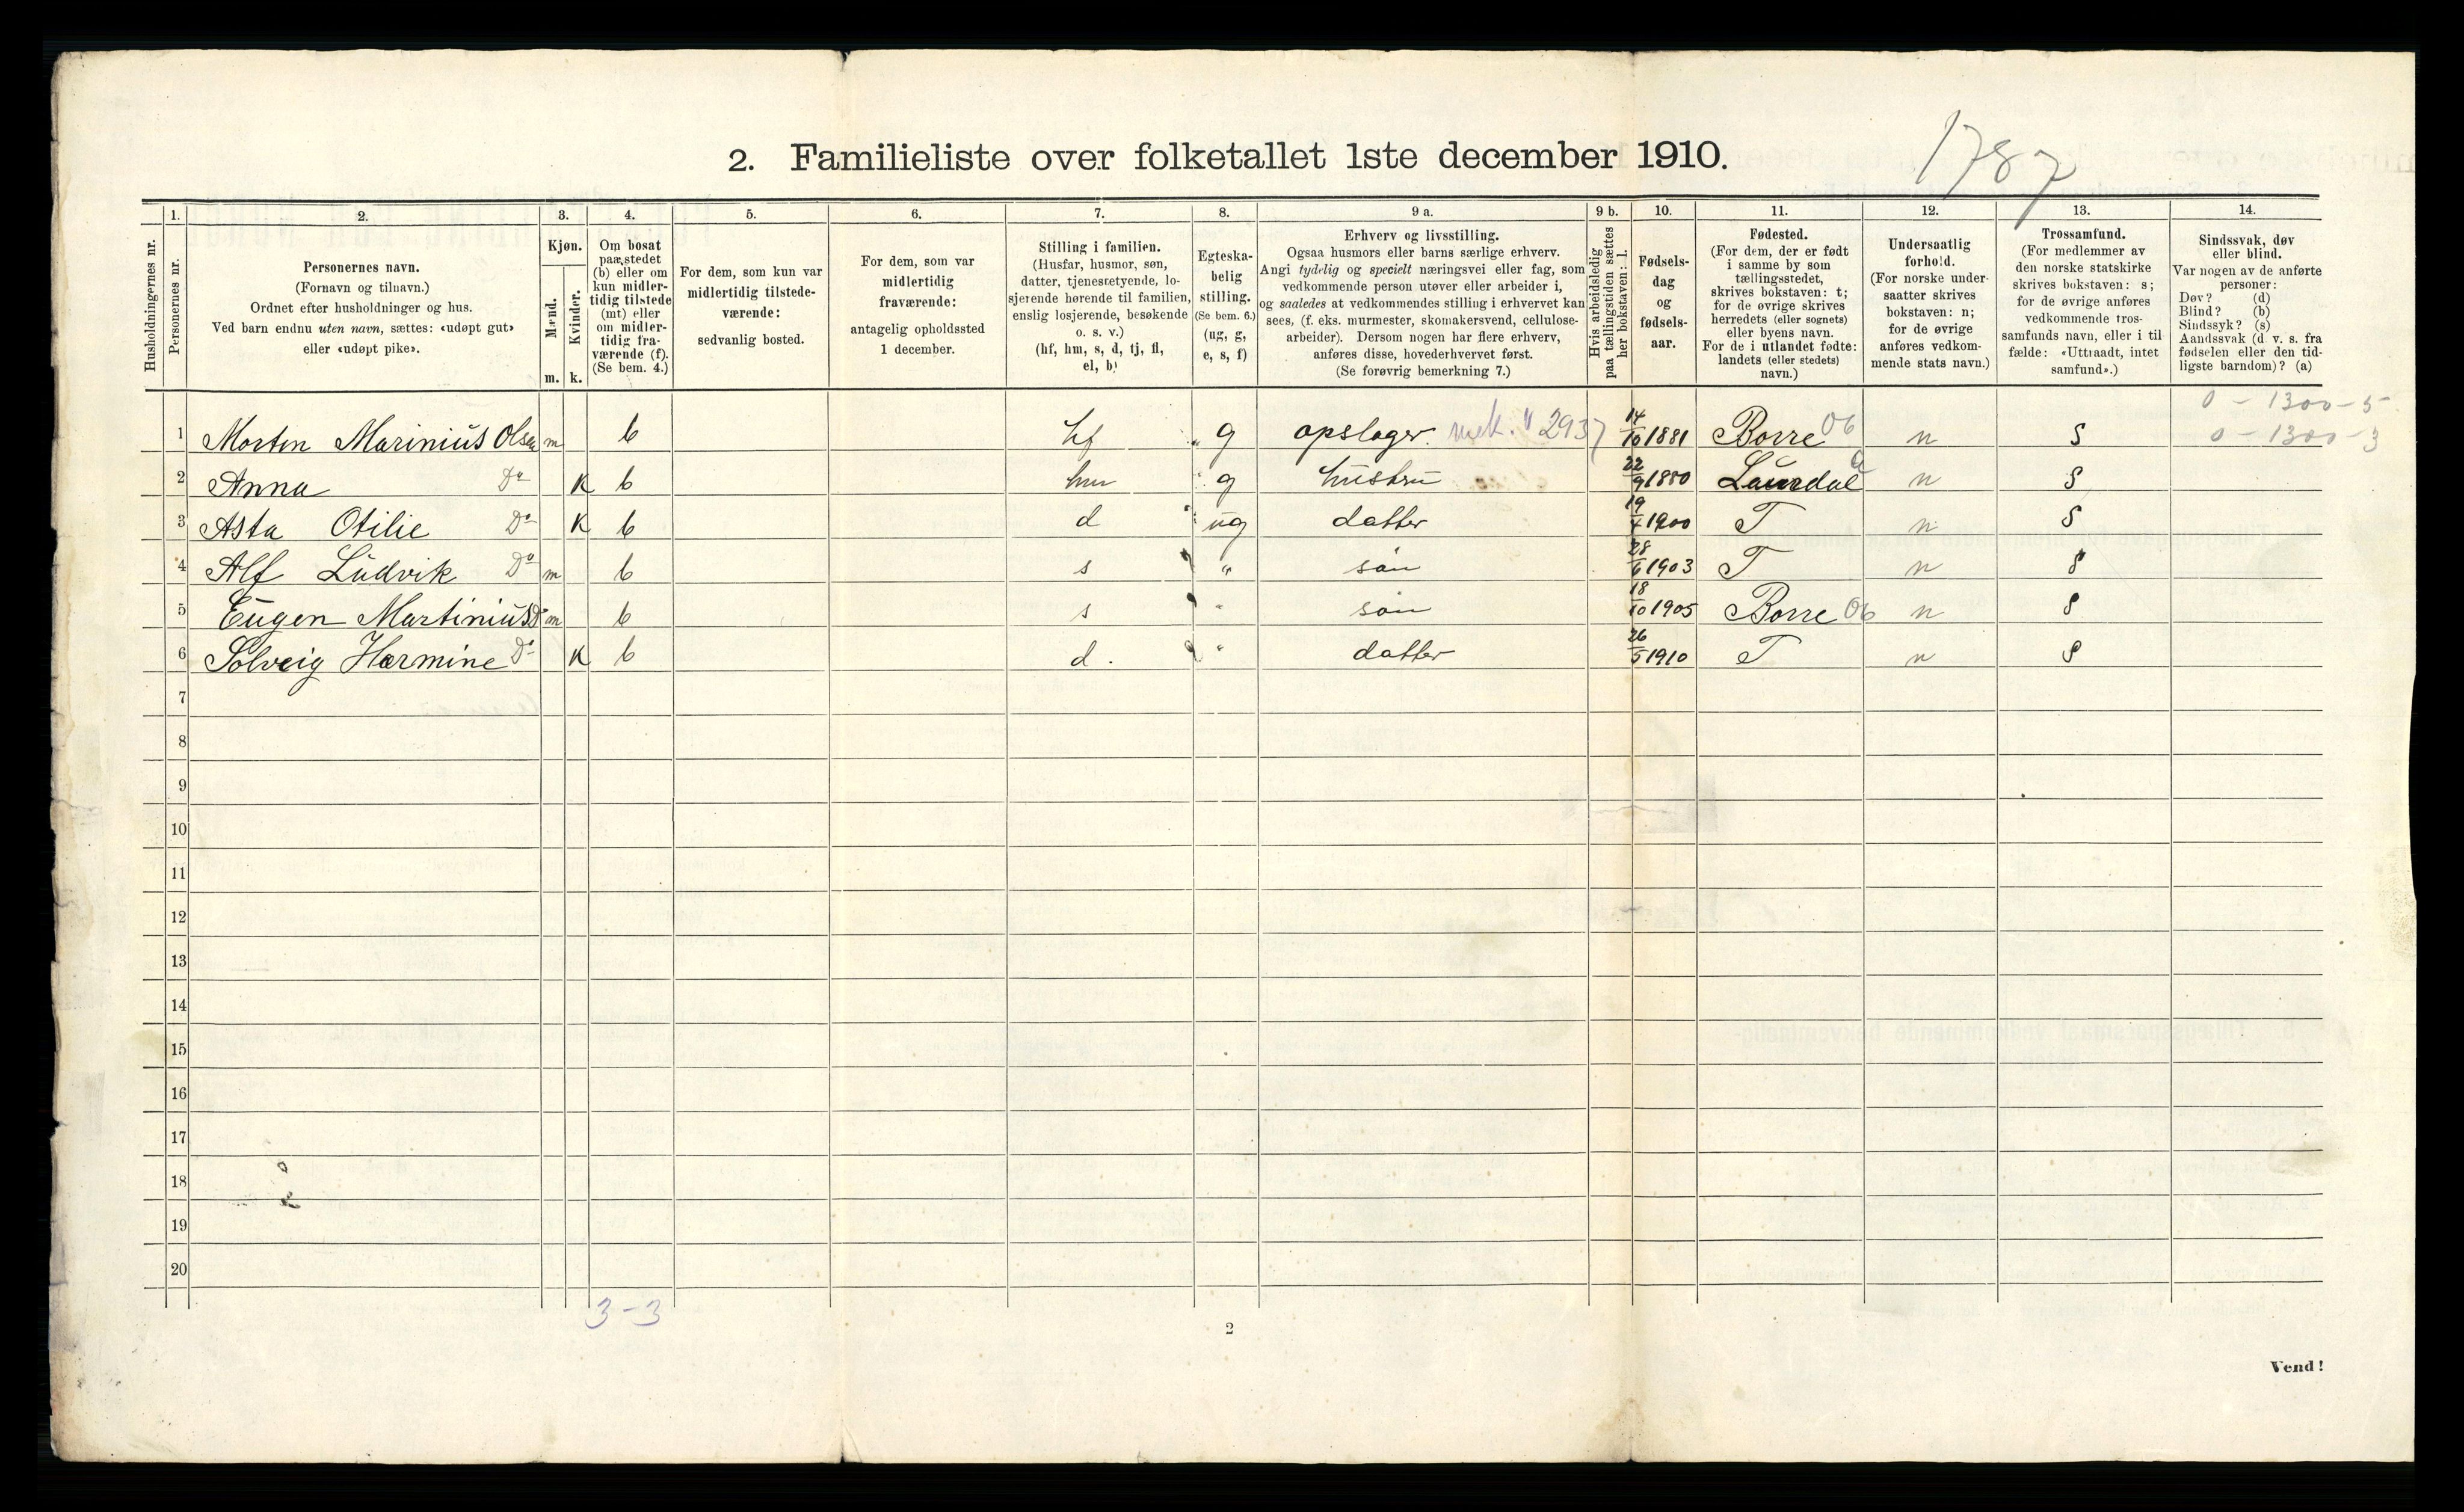 2. Familieliste over folketallet 1ste december 1910.
1787
1. 2. 3. 4. 5. 6. 7. 8. 9 a. 9 b. 10. 11. 12. 13. 14.
Husholdningernes nr.
Personernes nr.
Personernes navn.
(Fornavn og tilnavn.)
Ordnet efter husholdninger og hus.
Ved barn endnu uten navn, sættes: «udøpt gut»
eller «udøpt pike».
Kjøn.
Mænd.
Kvinder.
m. k.
Om bosat
paa stedet
(b) eller om
kun midler-
tidig tilstede
(mt) eller
om midler-
tidig fra-
værende (f).
(Se bem. 4.)
For dem, som kun var
midlertidig tilstede-
værende:
sedvanlig bosted.
For dem, som var
midlertidig
fraværende:
antagelig opholdssted
1 december.
Stilling i familien.
(Husfar, husmor, søn,
datter, tjenestetyende, lo-
sjerende hørende til familien,
enslig losjerende, besøkende
o. s. v.)
(hf, hm, s, d, tj, fl,
el, b)
Egteska-
belig
stilling.
(Se bem. 6.)
(ug, g,
e, s, f)
Erhverv og livsstilling.
Ogsaa husmors eller barns særlige erhverv.
Angi tydelig og specielt næringsvei eller fag, som
vedkommende person utøver eller arbeider i,
og saaledes at vedkommendes stilling i erhvervet kan
sees, (f. eks. murmester, skomakersvend, cellulose-
arbeider). Dersom nogen har flere erhverv,
anføres disse, hovederhvervet først.
(Se forøvrig bemerkning 7.)
Hvis arbeidsledig
paa tællingstiden sættes
her bokstaven: l.
Fødsels-
dag
og
fødsels-
aar.
Fødested.
(For dem, der er født
i samme by som
tællingsstedet,
skrives bokstaven: t;
for de øvrige skrives
herredets (eller sognets)
eller byens navn.
For de i utlandet fødte:
landets (eller stedets)
navn.)
Undersaatlig
forhold.
(For norske under-
saatter skrives
bokstaven: n;
for de øvrige
anføres vedkom-
mende stats navn.)
Trossamfund.
(For medlemmer av
den norske statskirke
skrives bokstaven: s;
for de øvrige anføres
vedkommende tros-
samfunds navn, eller i til
fælde: «Uttraadt, intet
samfund».)
Sindssvak, døv
eller blind.
Var nogen av de anførte
personer:
Døv? (d)
Blind? (b)
Sindssyk? (s)
Aandssvak (d v. s. fra
fødselen eller den tid-
ligste barndom)? (a)
0 - 1300 - 5
1 Morten Marinius Olsen m b hf g opslager. mek. " 2937 14/10 1881 Borre 06 n S 0 - 1300 - 3
2 Anna Do K b hm g hustru 22/9 1880 Laurdal n S
3 Asta Otilie Do K b d ug datter 19/4 1900 T n S
4 Alf Ludvik Do m b s " søn 28/6 1903 T n S
5 Eugen Martinius Do m b s " søn 18/10 1905 Borre 06 n S
6 Solveig Harmine Do K b d. " datter 26/5 1910 T n S
7
8
9
10
11
12
13
14
15
16
17
18
19
20
3-3
2
Vend!